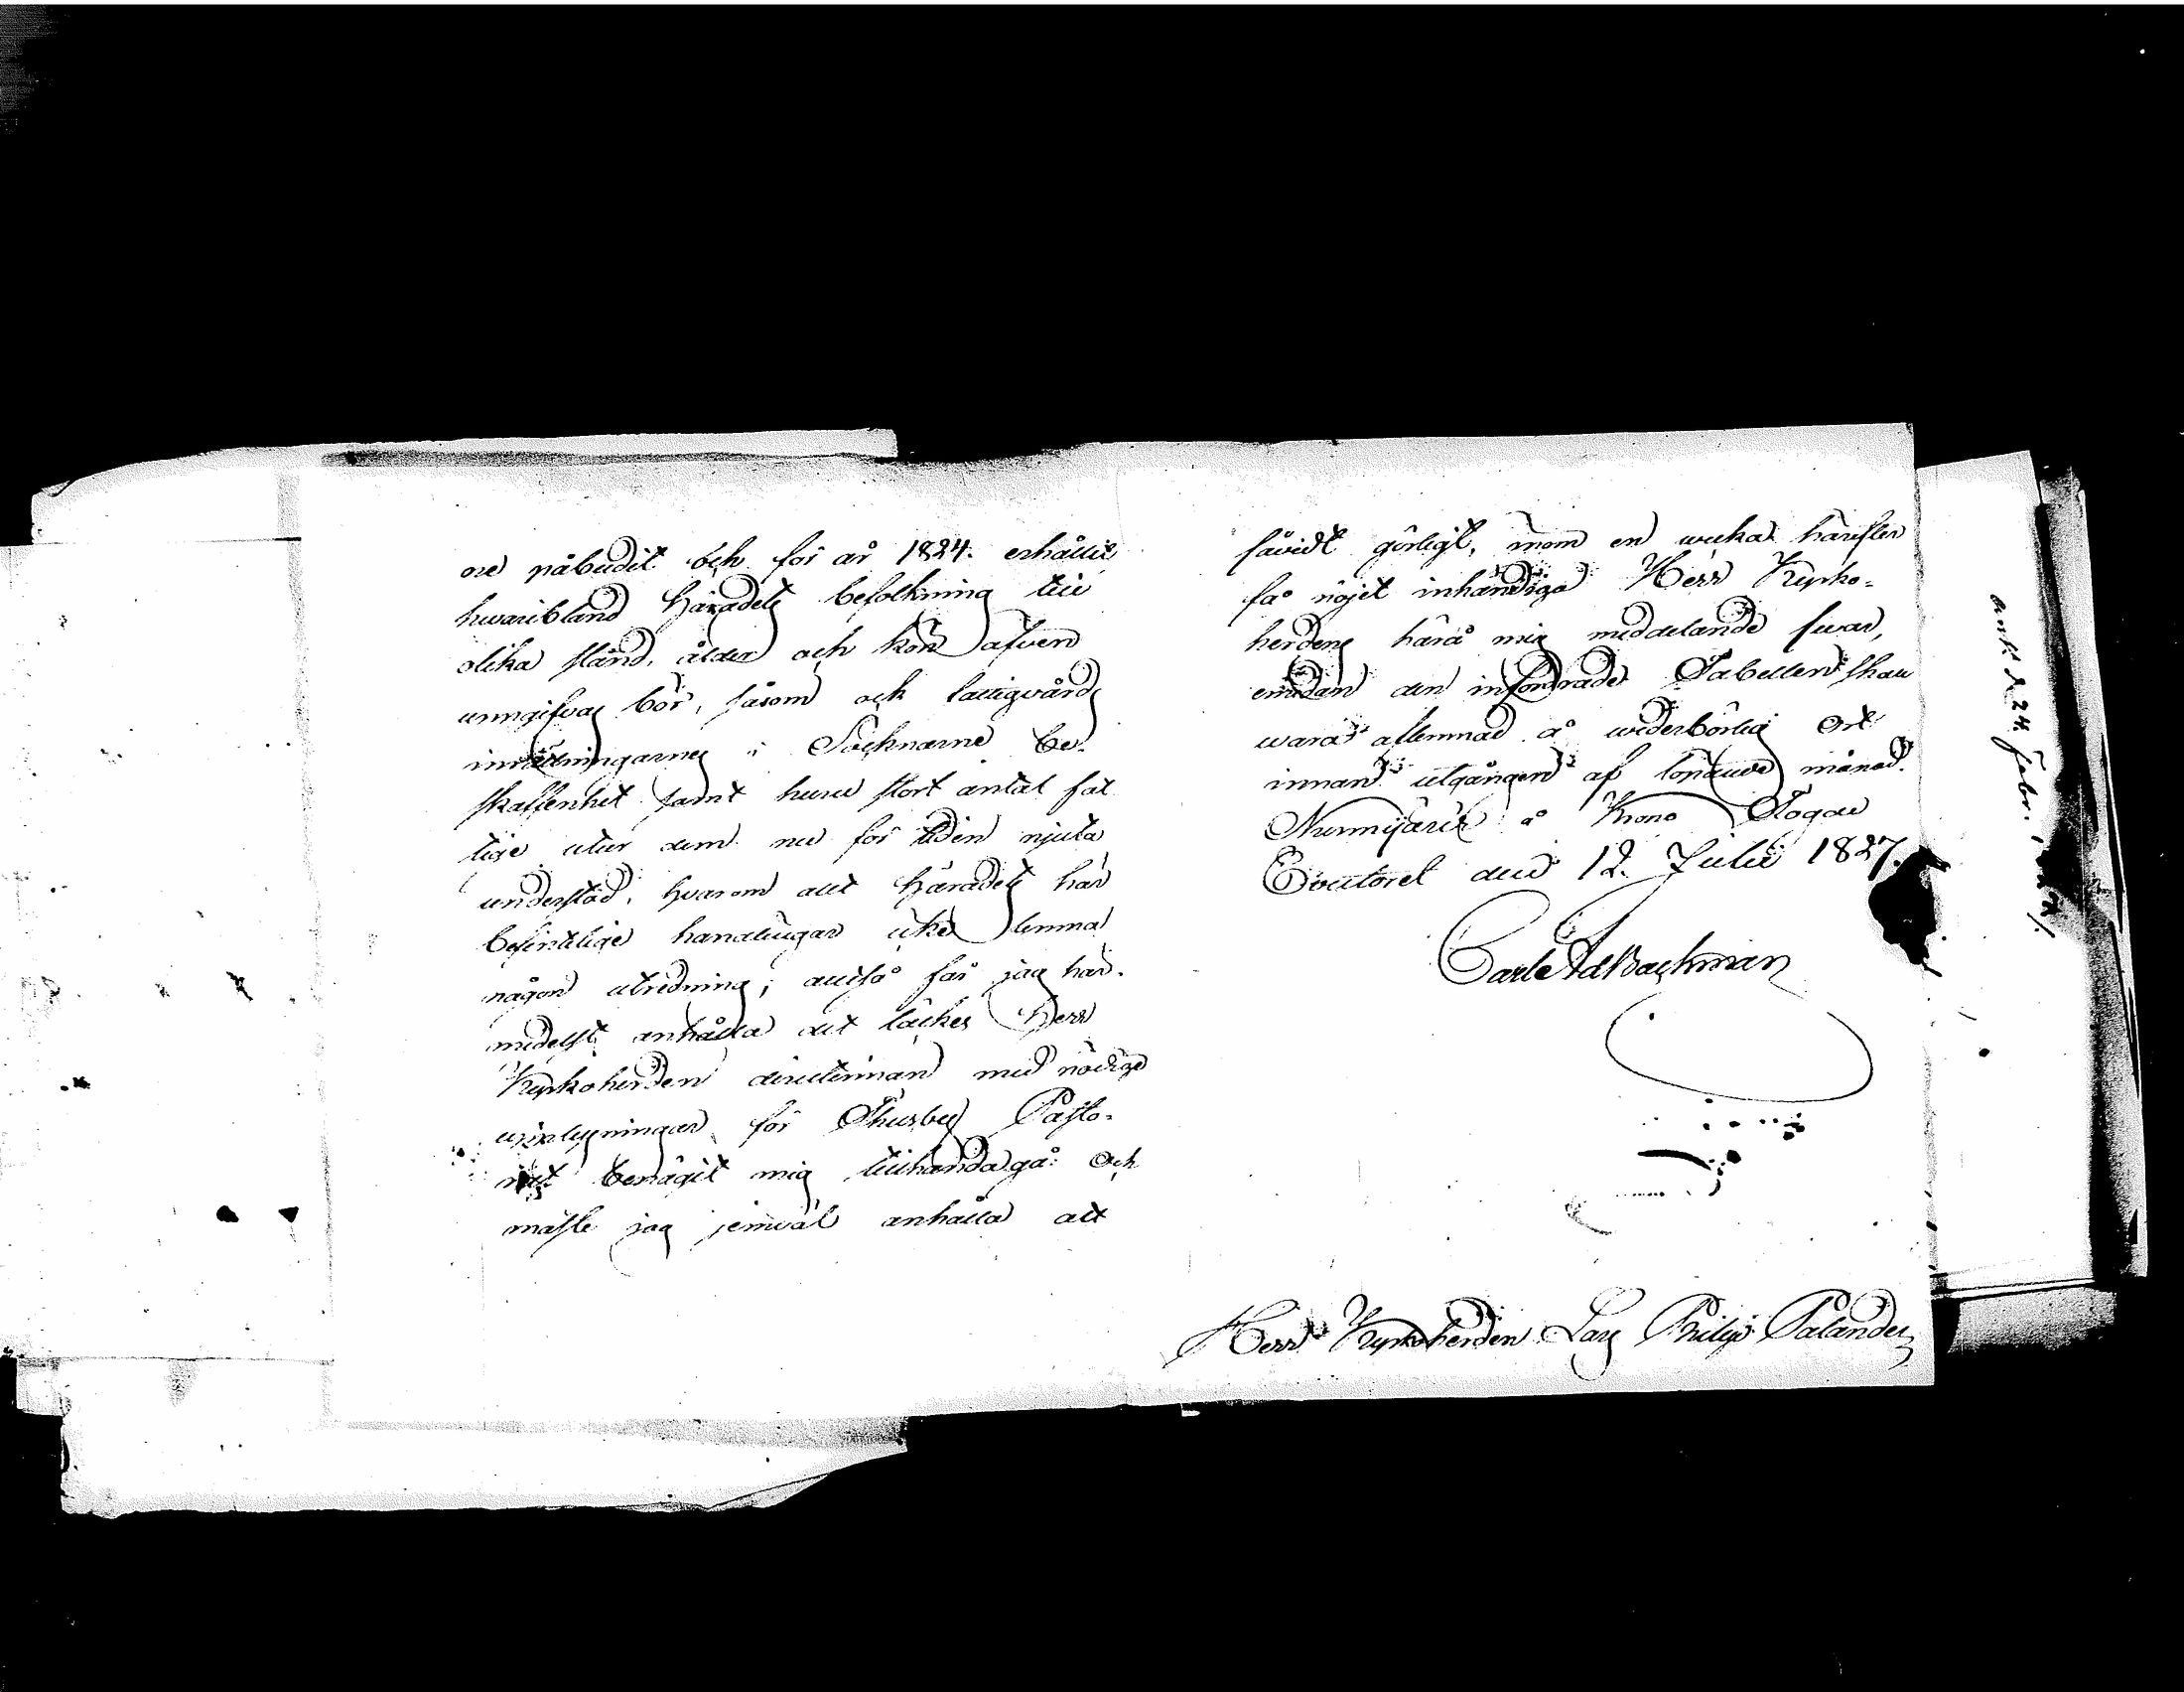 ne påbudit och för år 1824. erhållit
hwaribland Häradets befolkning till
olika stånd, ålder och kön äfven
uppgifvas bör, såsom ock fattigvårds
inrättningarnes i Socknarne be-
skaffenhet samt huru stort antal fat
tige utur dem nu för tiden njuta
understöd, hvarom att Häradets här
befintelige handlingar icke lemna
någon utredning; altså får jag här-
medelst anhålla att täckes Herr
Kyrkoherden derutinnan med nödige
upplysningar för Thusby Pasto-
rat benägit mig tillhandagå. Och
måste jag jemwäl anhålla att
såvidt görligt, inom en wecka härefter
få nöjet inhändiga Herr Kyrko-
herdens härå mig meddelande swar,
emedan den infordrade Tabellen skall
wara aflemnad å wederbörlig Ort
innan utgången af löpande månad.
Nurmijärvi å Krono Fogde
Contoret den 12. Julii 1827.
Carl Ad Backman
Herr Kyrkoherden Lars Philip Palander
ank. d. 24. Febr.